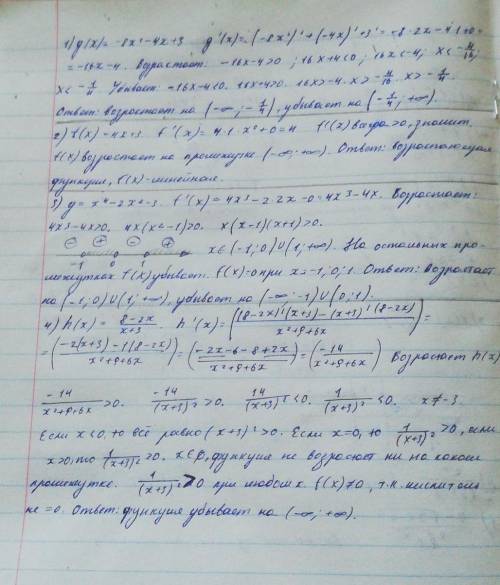 1) g(x) = -8x²-4x+3 g'(x) = (-8x²)'+(-4x)'+3' = -8·2x-4·1+0=
= -16x-4. Возрастает: -16x-4>0; 16x+4<0; 16x<-4; x<-4/16;
x<-1/4. Убывает: -16x-4<0. 16x+4>0. 16x>-4. x>-4/16 x>-1/4.
Ответ: возрастает на (-∞;-1/4), убывает на (-1/4;+∞).
2) f(x)=4x+3. f'(x)=4·1·x⁰+0=4 f'(x) всегда >0, значит
f(x) возрастает на промежутке (-∞;+∞). Ответ: возрастающая
функция, f(x)-линейная.
3) y = x⁴-2x²-3. f'(x)=4x³-2·2x-0=4x³-4x. Возрастает:
4x³-4x>0. 4x(x²-1)>0. x(x-1)(x+1)>0.
⊖ ⊕ ⊖ ⊕ x∈(-1;0)U(1;+∞). На остальных про-
-1 0 1 межутках f(x) убывает. f(x)=0 при x=-1,0;1. Ответ: возрастает
на (-1;0)U(1;+∞), убывает на (-∞;-1)U(0;1).
4) h(x) = (8-2x)/(x+3) h'(x) = (((8-2x)'(x+3)-(x+3)'(8-2x))/(x²+9+6x)) =
= ((-2(x+3)-1(8-2x))/(x²+9+6x)) = ((-2x-6-8+2x)/(x²+9+6x)) = (-14/(x²+9+6x)) Возрастает h(x)
-14/(x²+9+6x) >0. -14/(x+3)² >0. 14/(x+3)² <0. 1/(x+3)² <0. x≠-3
Если x<0, то всё равно (x+3)²>0. Если x=0, то 1/(x+3)² >0, если
x>0, то 1/(x+3)² >0. x∈∅, функция не возрастает ни на каком
промежутке. 1/(x+3)² >0 при любом x f(x)≠0, т.к. числитель
не =0. Ответ: функция убывает на (-∞;+∞).